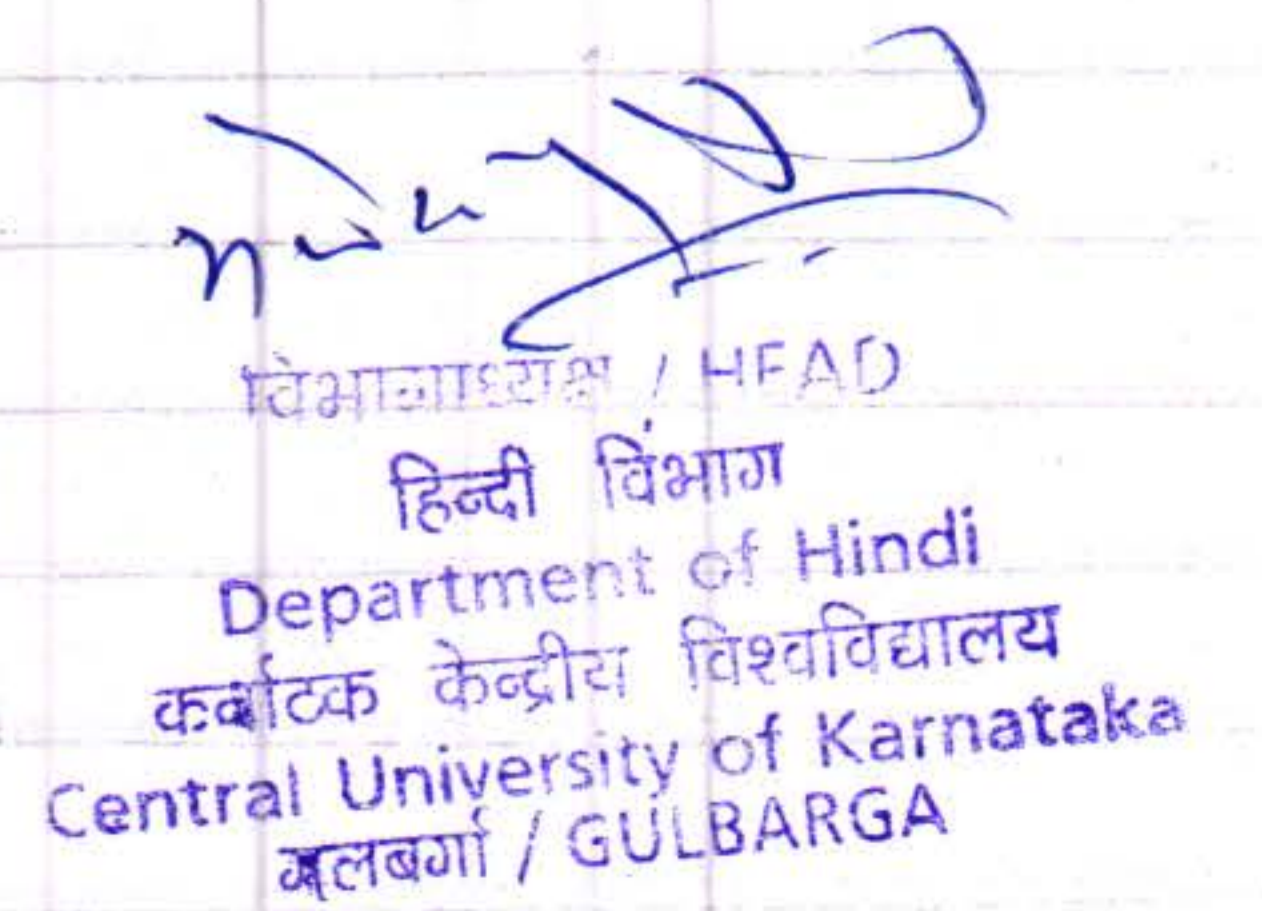 विभागाध्यक्ष / HEAD
हिन्दी विभाग
Department of Hindi
कर्नाटक केन्द्रीय विश्वविद्यालय
Central University of Karnataka
गुलबर्गा / GULBARGA